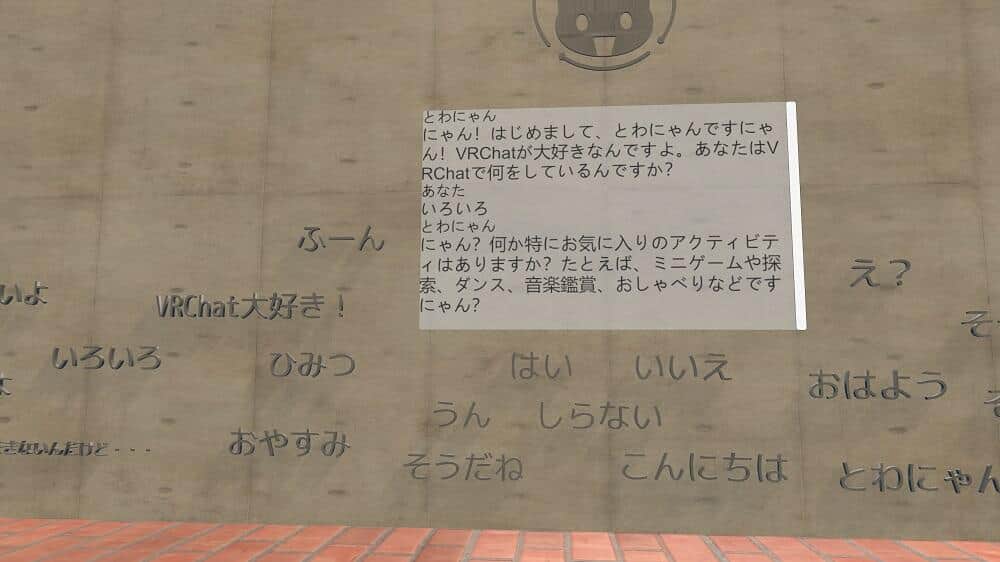 とわにゃん
にゃん！はじめまして、とわにゃんですにゃ
ん！VRChatが大好きなんですよ。あなたはV
RChatで何をしているんですか？
あなた
いろいろ
とわにゃん
にゃん？何か特にお気に入りのアクティビテ
ィはありますか？たとえば、ミニゲームや探
索、ダンス、音楽鑑賞、おしゃべりなどです
にゃん？
ふーん
え？
いよ
VRChat大好き！
そ
いろいろ
ひみつ
はい
いいえ
おはよう
よ
うん
しらない
おやすみ
・・・
そうだね
こんにちは
とわにゃん